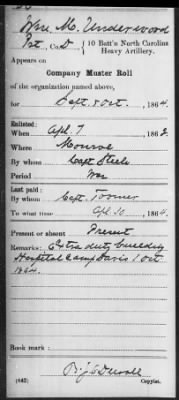 Wm. M. Underwood
Pvt., Co. D, 10 Batt'n North Carolina
Heavy Artillery.
Appears on
Company Muster Roll
of the organization named above,
for Sept. & Oct., 1864.
Enlisted:
When Apl. 7, 1862.
Where Monroe
By whom Capt. Steele
Period War
Last paid:
By whom Capt. Toomer
To what time Apl. 30, 1864.
Present or absent Present
Remarks: Extra duty building
Hospital Camp Davis 1 Oct.
1864.
Book mark:
(642) Copyist.